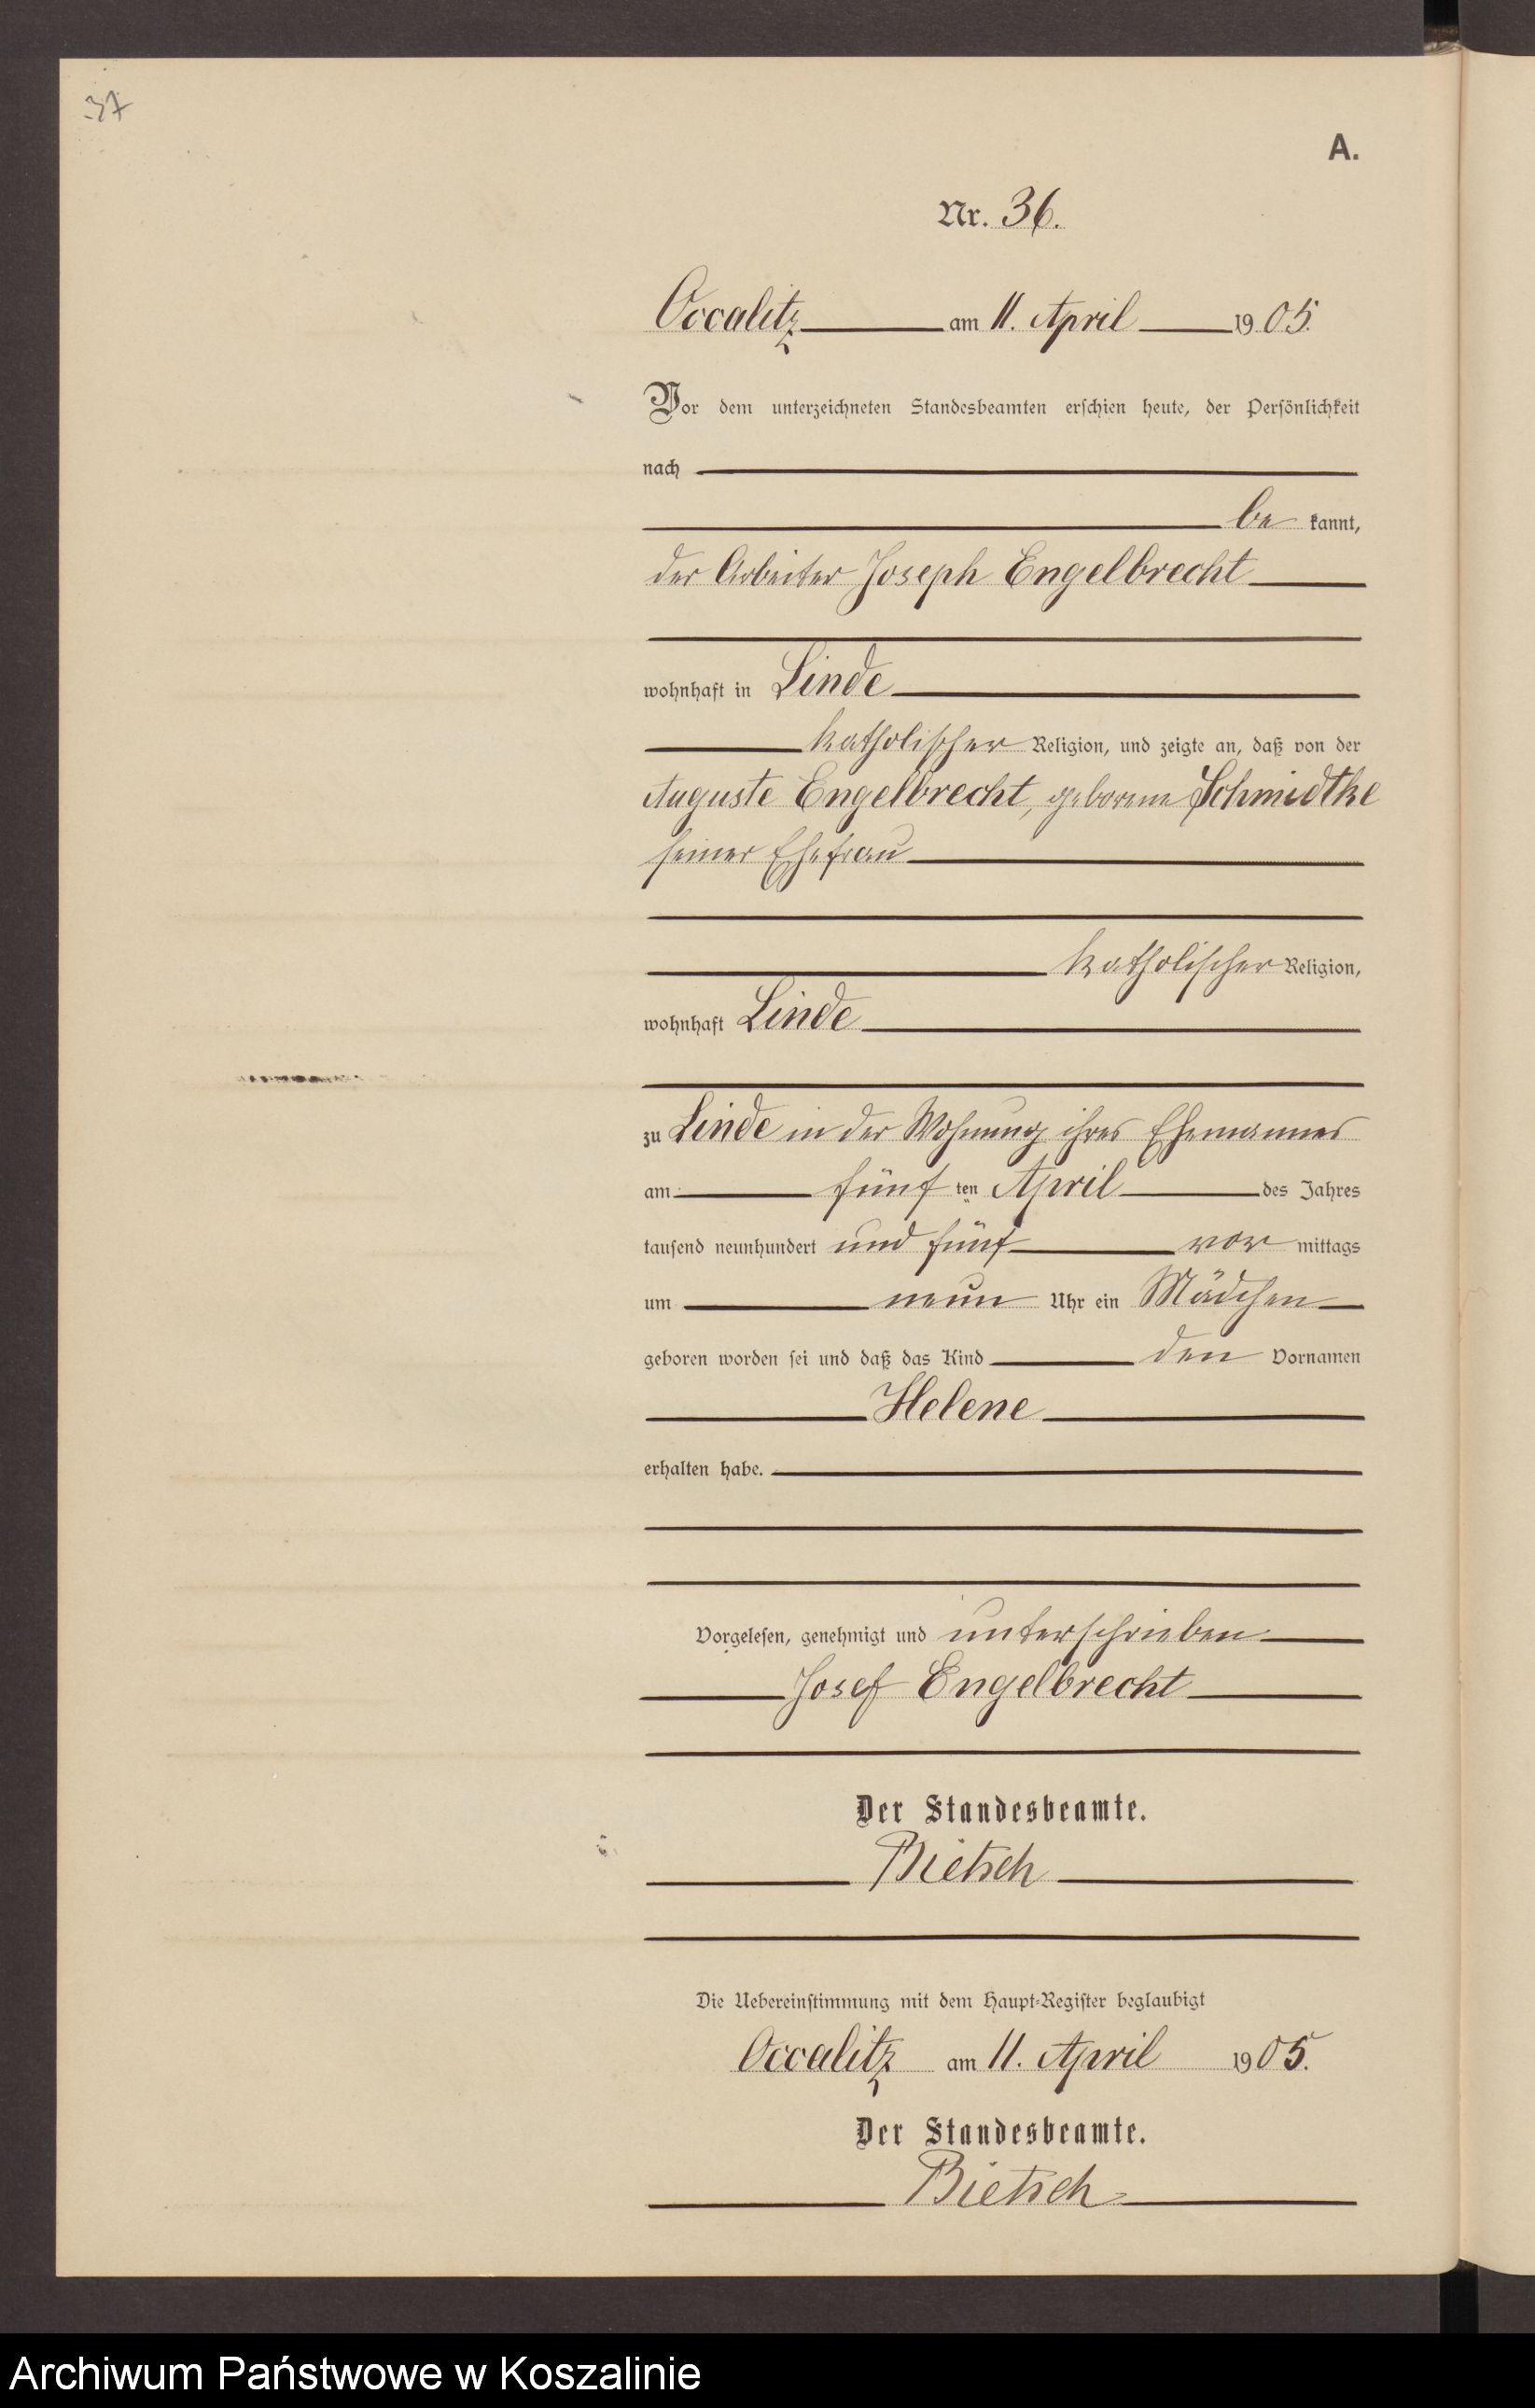 37
A.
Nr. 36.
Occalitz am 11. April 1905.
Vor dem unterzeichneten Standesbeamten erschien heute, der Persönlichkeit
nach
be kannt,
der Arbeiter Joseph Engelbrecht
wohnhaft in Linde
katholischer Religion, und zeigte an, daß von der
Auguste Engelbrecht, geborene Schmidtke
seiner Ehefrau
katholischer Religion,
wohnhaft Linde
zu Linde in der Wohnung ihres Ehemannes
am fünf ten April des Jahres
tausend neunhundert und fünf vor mittags
um neun Uhr ein Mädchen
geboren worden sei und daß das Kind den Vornamen
Helene
erhalten habe.
Vorgelesen, genehmigt und unterschrieben
Josef Engelbrecht
Der Standesbeamte.
Bietsch
Die Uebereinstimmung mit dem Haupt-Register beglaubigt
Occalitz am 11. April 1905.
Der Standesbeamte.
Bietsch
Archiwum Państwowe w Koszalinie